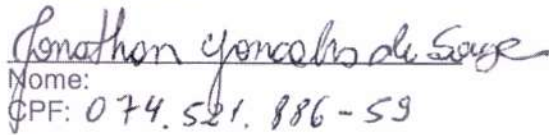 Jonathan Gonçalves de Souza
Nome:
CPF: 074.521.886-59